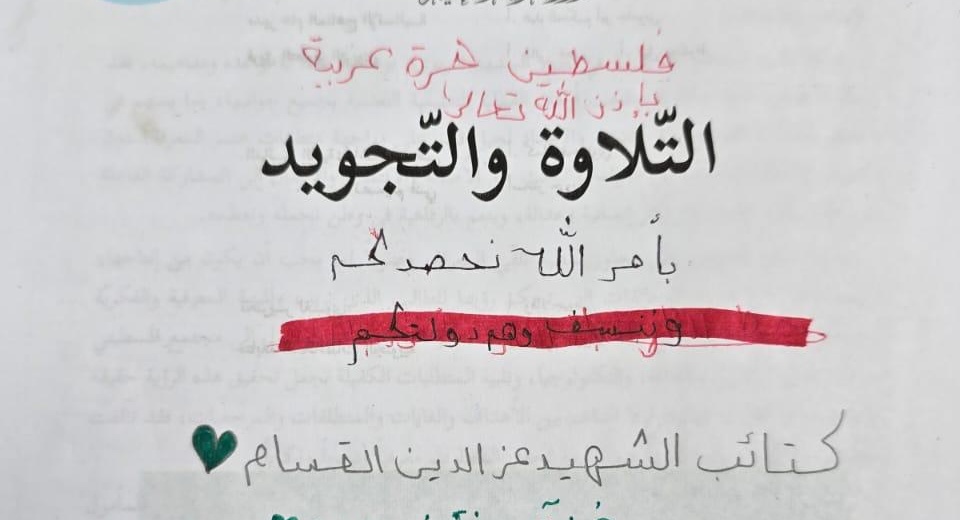 فلسطين حرة عربية
بإذن الله تعالى
التّلاوة والتّجويد
بأمر الله نحصدكم
وننسف وهم دولتكم
كتائب الشهيد عز الدين القسام